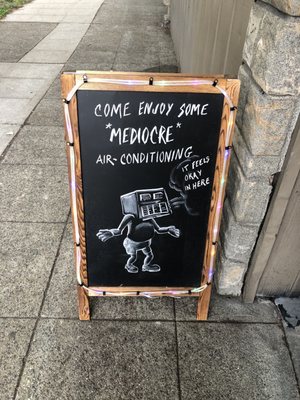 COME ENJOY SOME
*MEDIOCRE*
AIR-CONDITIONING
IT FEELS
OKAY
IN HERE